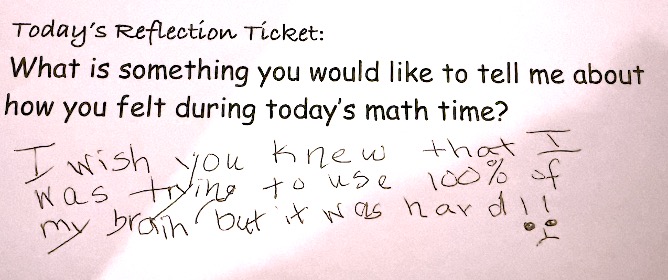 Today's Reflection Ticket:
What is something you would like to tell me about
how you felt during today's math time?
I wish you knew that I
was trying to use 100% of
my brain but it was hard!!